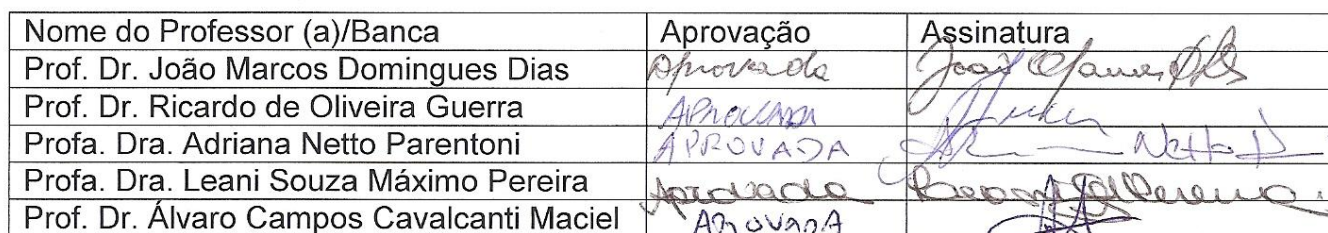 Nome do Professor (a)/Banca Aprovação Assinatura
Prof. Dr. João Marcos Domingues Dias Aprovada João
Prof. Dr. Ricardo de Oliveira Guerra APROVADA
Profa. Dra. Adriana Netto Parentoni APROVADA Netto
Profa. Dra. Leani Souza Máximo Pereira Aprovada Pereira
Prof. Dr. Álvaro Campos Cavalcanti Maciel APROVADA